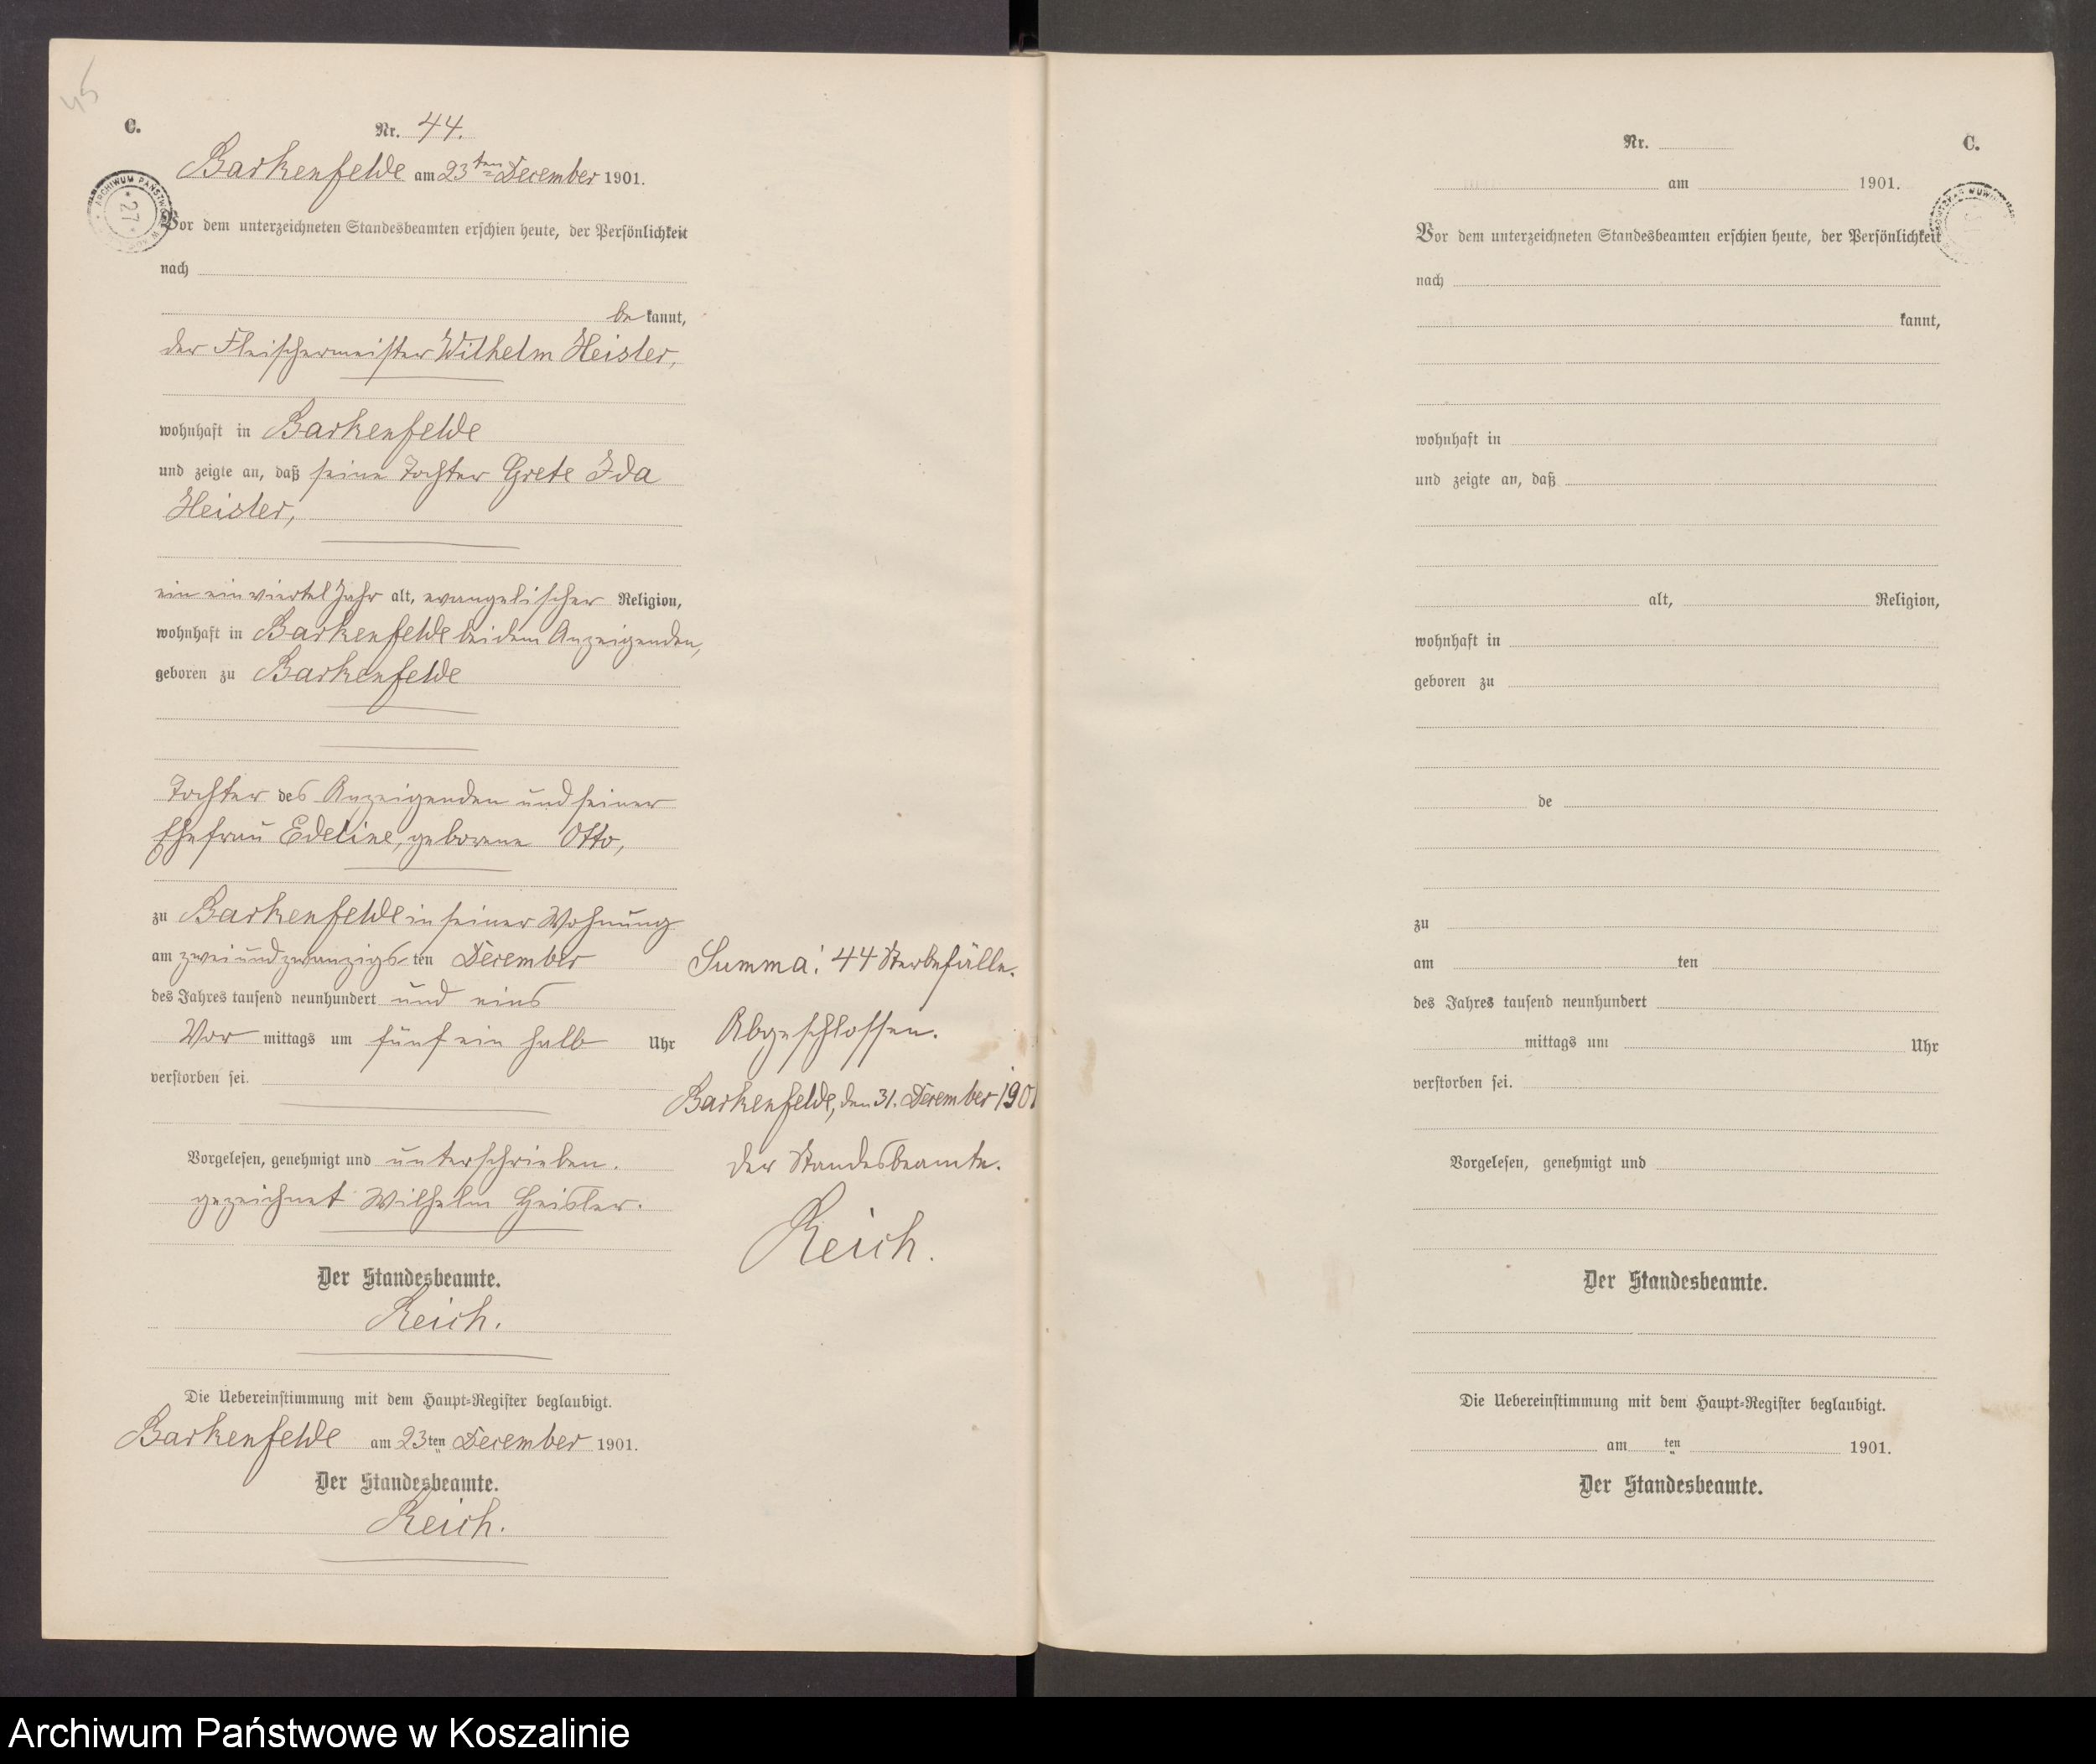 45
C.
Nr. 44.
Barkenfelde am 23ten December 1901.
ARCHIWUM PAŃSTWOWE W
* 27 *
Vor dem unterzeichneten Standesbeamten erschien heute, der Persönlichkeit
nach
be kannt,
der Fleischermeister Wilhelm Heisler,
wohnhaft in Barkenfelde
und zeigte an, daß seine Tochter Grete Ida
Heisler,
ein ein viertel Jahr alt, evangelischer Religion,
wohnhaft in Barkenfelde bei dem Anzeigenden,
geboren zu Barkenfelde
Tochter des Anzeigenden und seiner
Ehefrau Edeline, geborene Otto,
zu Barkenfelde in seiner Wohnung
am zweiundzwanzigsten December
des Jahres tausend neunhundert und eins
Vor mittags um fünf ein halb Uhr
verstorben sei.
Vorgelesen, genehmigt und unterschrieben.
gezeichnet Wilhelm Heisler.
Der Standesbeamte.
Reich.
Die Uebereinstimmung mit dem Haupt-Register beglaubigt.
Barkenfelde am 23ten December 1901.
Der Standesbeamte.
Reich.
Summa: 44 Sterbefälle.
Abgeschlossen.
Barkenfelde, den 31. December 1901
Der Standesbeamte.
Reich.
Nr.
C.
am 1901.
Vor dem unterzeichneten Standesbeamten erschien heute, der Persönlichkeit
nach
kannt,
wohnhaft in
und zeigte an, daß
alt, Religion,
wohnhaft in
geboren zu
de
zu
am ten
des Jahres tausend neunhundert
mittags um Uhr
verstorben sei.
Vorgelesen, genehmigt und
Der Standesbeamte.
Die Uebereinstimmung mit dem Haupt-Register beglaubigt.
am ten 1901.
Der Standesbeamte.
Archiwum Państwowe w Koszalinie